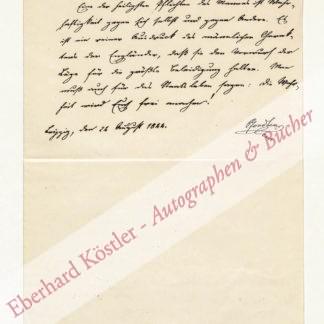 Eine der heiligsten Pflichten des Mannes ist Wahr-
haftigkeit gegen sich selbst und gegen Andere. Es
ist ein reiner Ausdruck des männlichen Charak-
ters der Engländer, daß sie den Vorwurf der
Lüge für die größte Beleidigung halten. Man
muß auch für das Staatsleben sagen: die Wahr-
heit wird Euch frei machen!
Leipzig, den 26 August 1844.
Eberhard Köstler - Autographen & Bücher